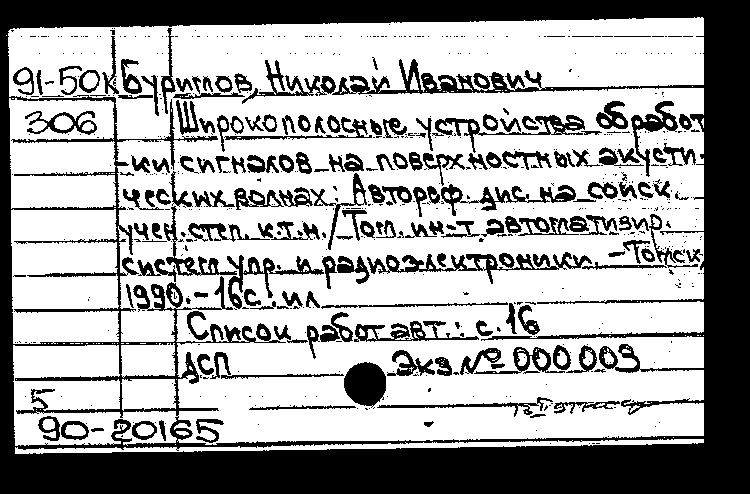 91-50к Буримов, Николай Иванович
306 Широкополосные устройства обработ
-ки сигналов на поверхностных акусти-
ческих волнах: Автореф. дис. на соиск.
учен. степ. к.т.н./Том. ин-т автоматизир.
систем упр. и радиоэлектроники. -Томск,
1990.-16с.: ил
Список работ авт.: с.16
ДСП Экз № 000003
5
90-20165